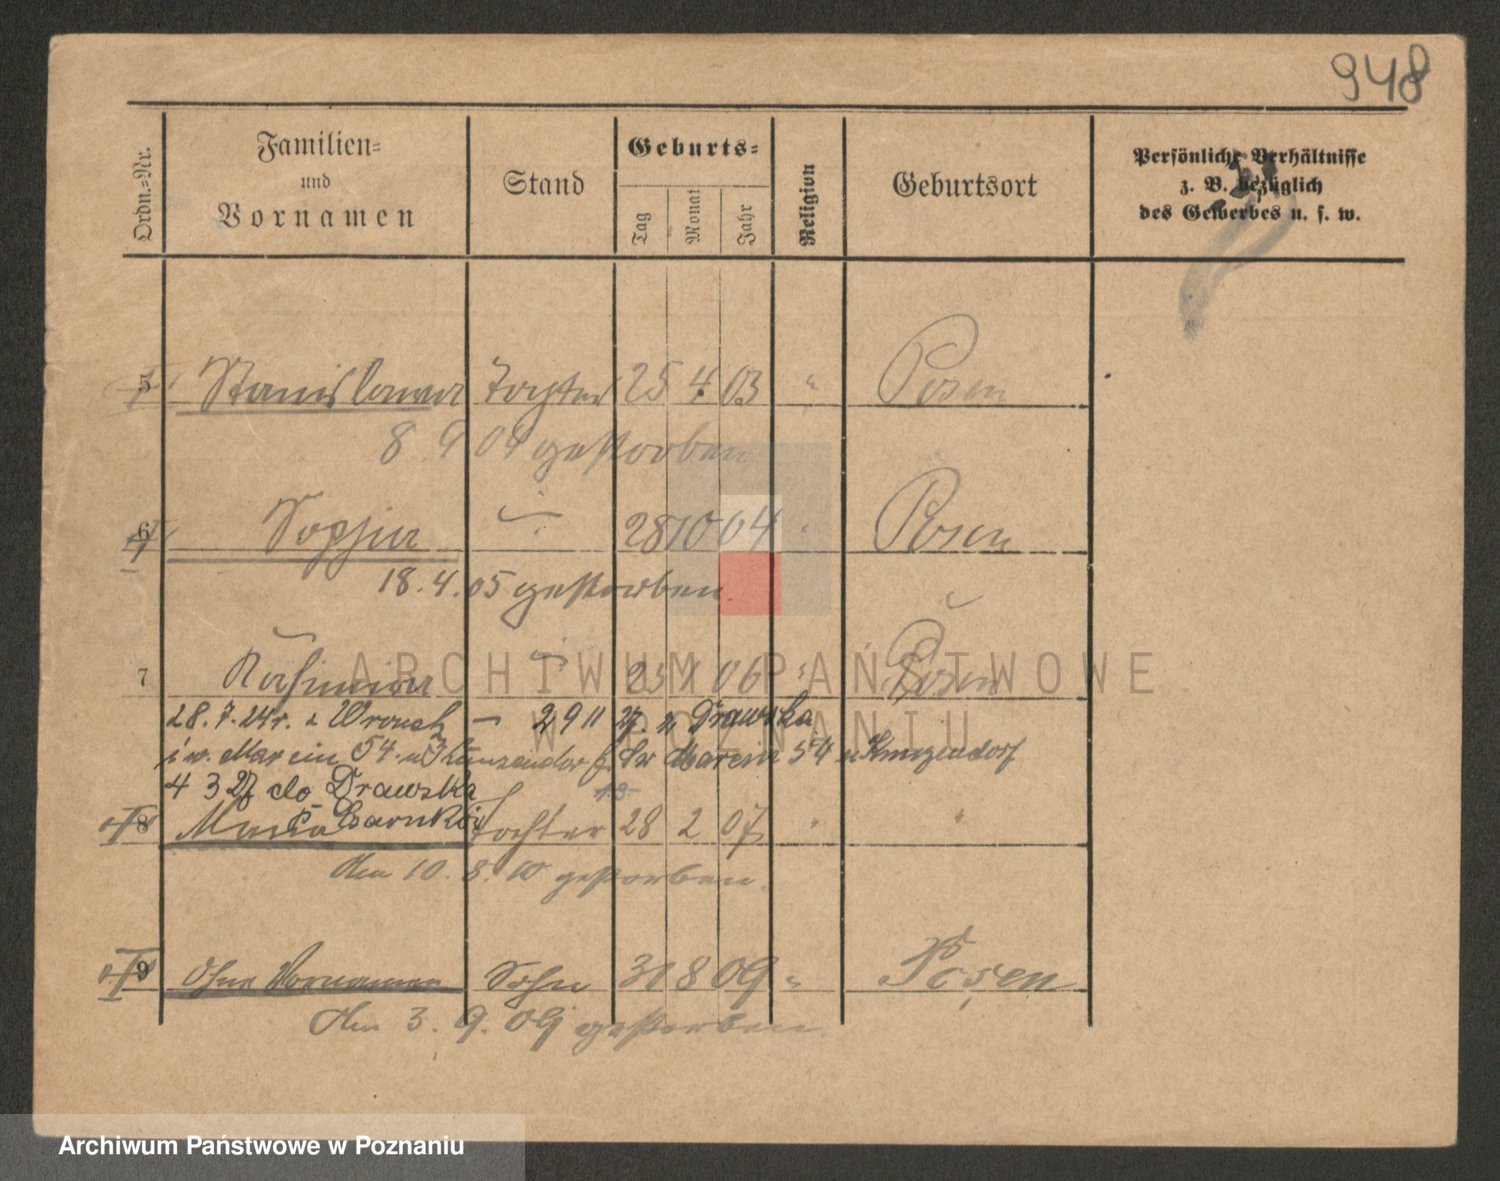 948
Ordn.=Nr. Familien= und Vornamen Stand Geburts= Tag Monat Jahr Religion Geburtsort Persönliche Verhältnisse z. B. bezüglich des Gewerbes u. s. w.
5 Stanislawa Tochter 25 4 03 " Posen
8. 9 04 gestorben
6 Sophia 28 10 04 " Posen
18. 4. 05 gestorben.
7 Kasimira 25 1 06 " Posen
28. 7. 24 r. z Wronek – 29 11 27. z Drawska
św. Marcin 54 Św Marcin 54
4 3 27 do Drawska
p. Czarnków
8 Maria Tochter 28 2 07 " "
den 10. 8. 10 gestorben.
9 Ohne Vornamen Sohn 31 8 09 " Posen
den 3. 9. 09 gestorben.
ARCHIWUM PAŃSTWOWE
W POZNANIU
Archiwum Państwowe w Poznaniu